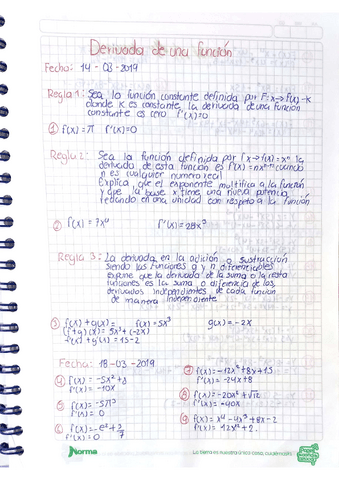 Derivada de una función
Fecha: 14 - 03 - 2019
Regla 1: Sea la función constante definida por F:x→f(x)=K
donde K es constante, la derivada de una función
constante es cero f'(x)=0
① f(x) = π f'(x)=0
Regla 2: Sea la función definida por f x→f(x)=xⁿ la
derivada de esta función es f'(x)=nxⁿ⁻¹ cuando
n es cualquier numero real
Explica que el exponente multiplica a la función
y que la base x tienes una nueva potencia
redando en una unidad con respeto a la función
② f(x) = 7x⁴ f'(x)=28x³
Regla 3: La derivada en la adición o sustracción
siendo las funciones g y n diferenciables
expone que la derivada de la suma o la resta
funciones es la suma o diferencia de las
derivadas independientes de cada función
de manera independiente
③ f(x)+g(x)= f(x)=5x³ g(x)=-2x
(f+g)(x) = 5x³+(-2x)
f'(x)+g'(x) = 15-2
Fecha: 18-03-2019
④ f(x) = -5x²+8
f'(x) = -10x
⑤ f(x) = -5π³
f'(x) = 0
⑥ f(x) = -e²+3/7
f'(x) = 0
⑦ f(x)=-12x²+8x+15
f'(x) = -24x+8
⑧ f(x)=-20x²+√12
f'(x)=-40x
⑨ f(x) = x⁴-4x³+8x-2
f'(x)= 12x²+2
Norma
La tierra es nuestra única casa, cuidémosla